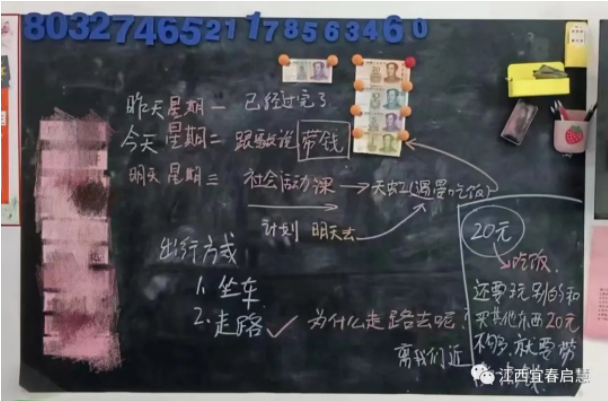 8032746521178563460
昨天星期一 已经过完了
今天星期二 跟家长说 带钱
明天星期三 社会活动课 → 天虹(遇见吃饭)
计划 明天去
20元
吃饭.
出行方式
1. 坐车
2. 走路 ✓ 为什么走路去呢?
离我们近
还要玩别的和
买其他东西20元
不够,就要带
钱.
江西宜春启慧